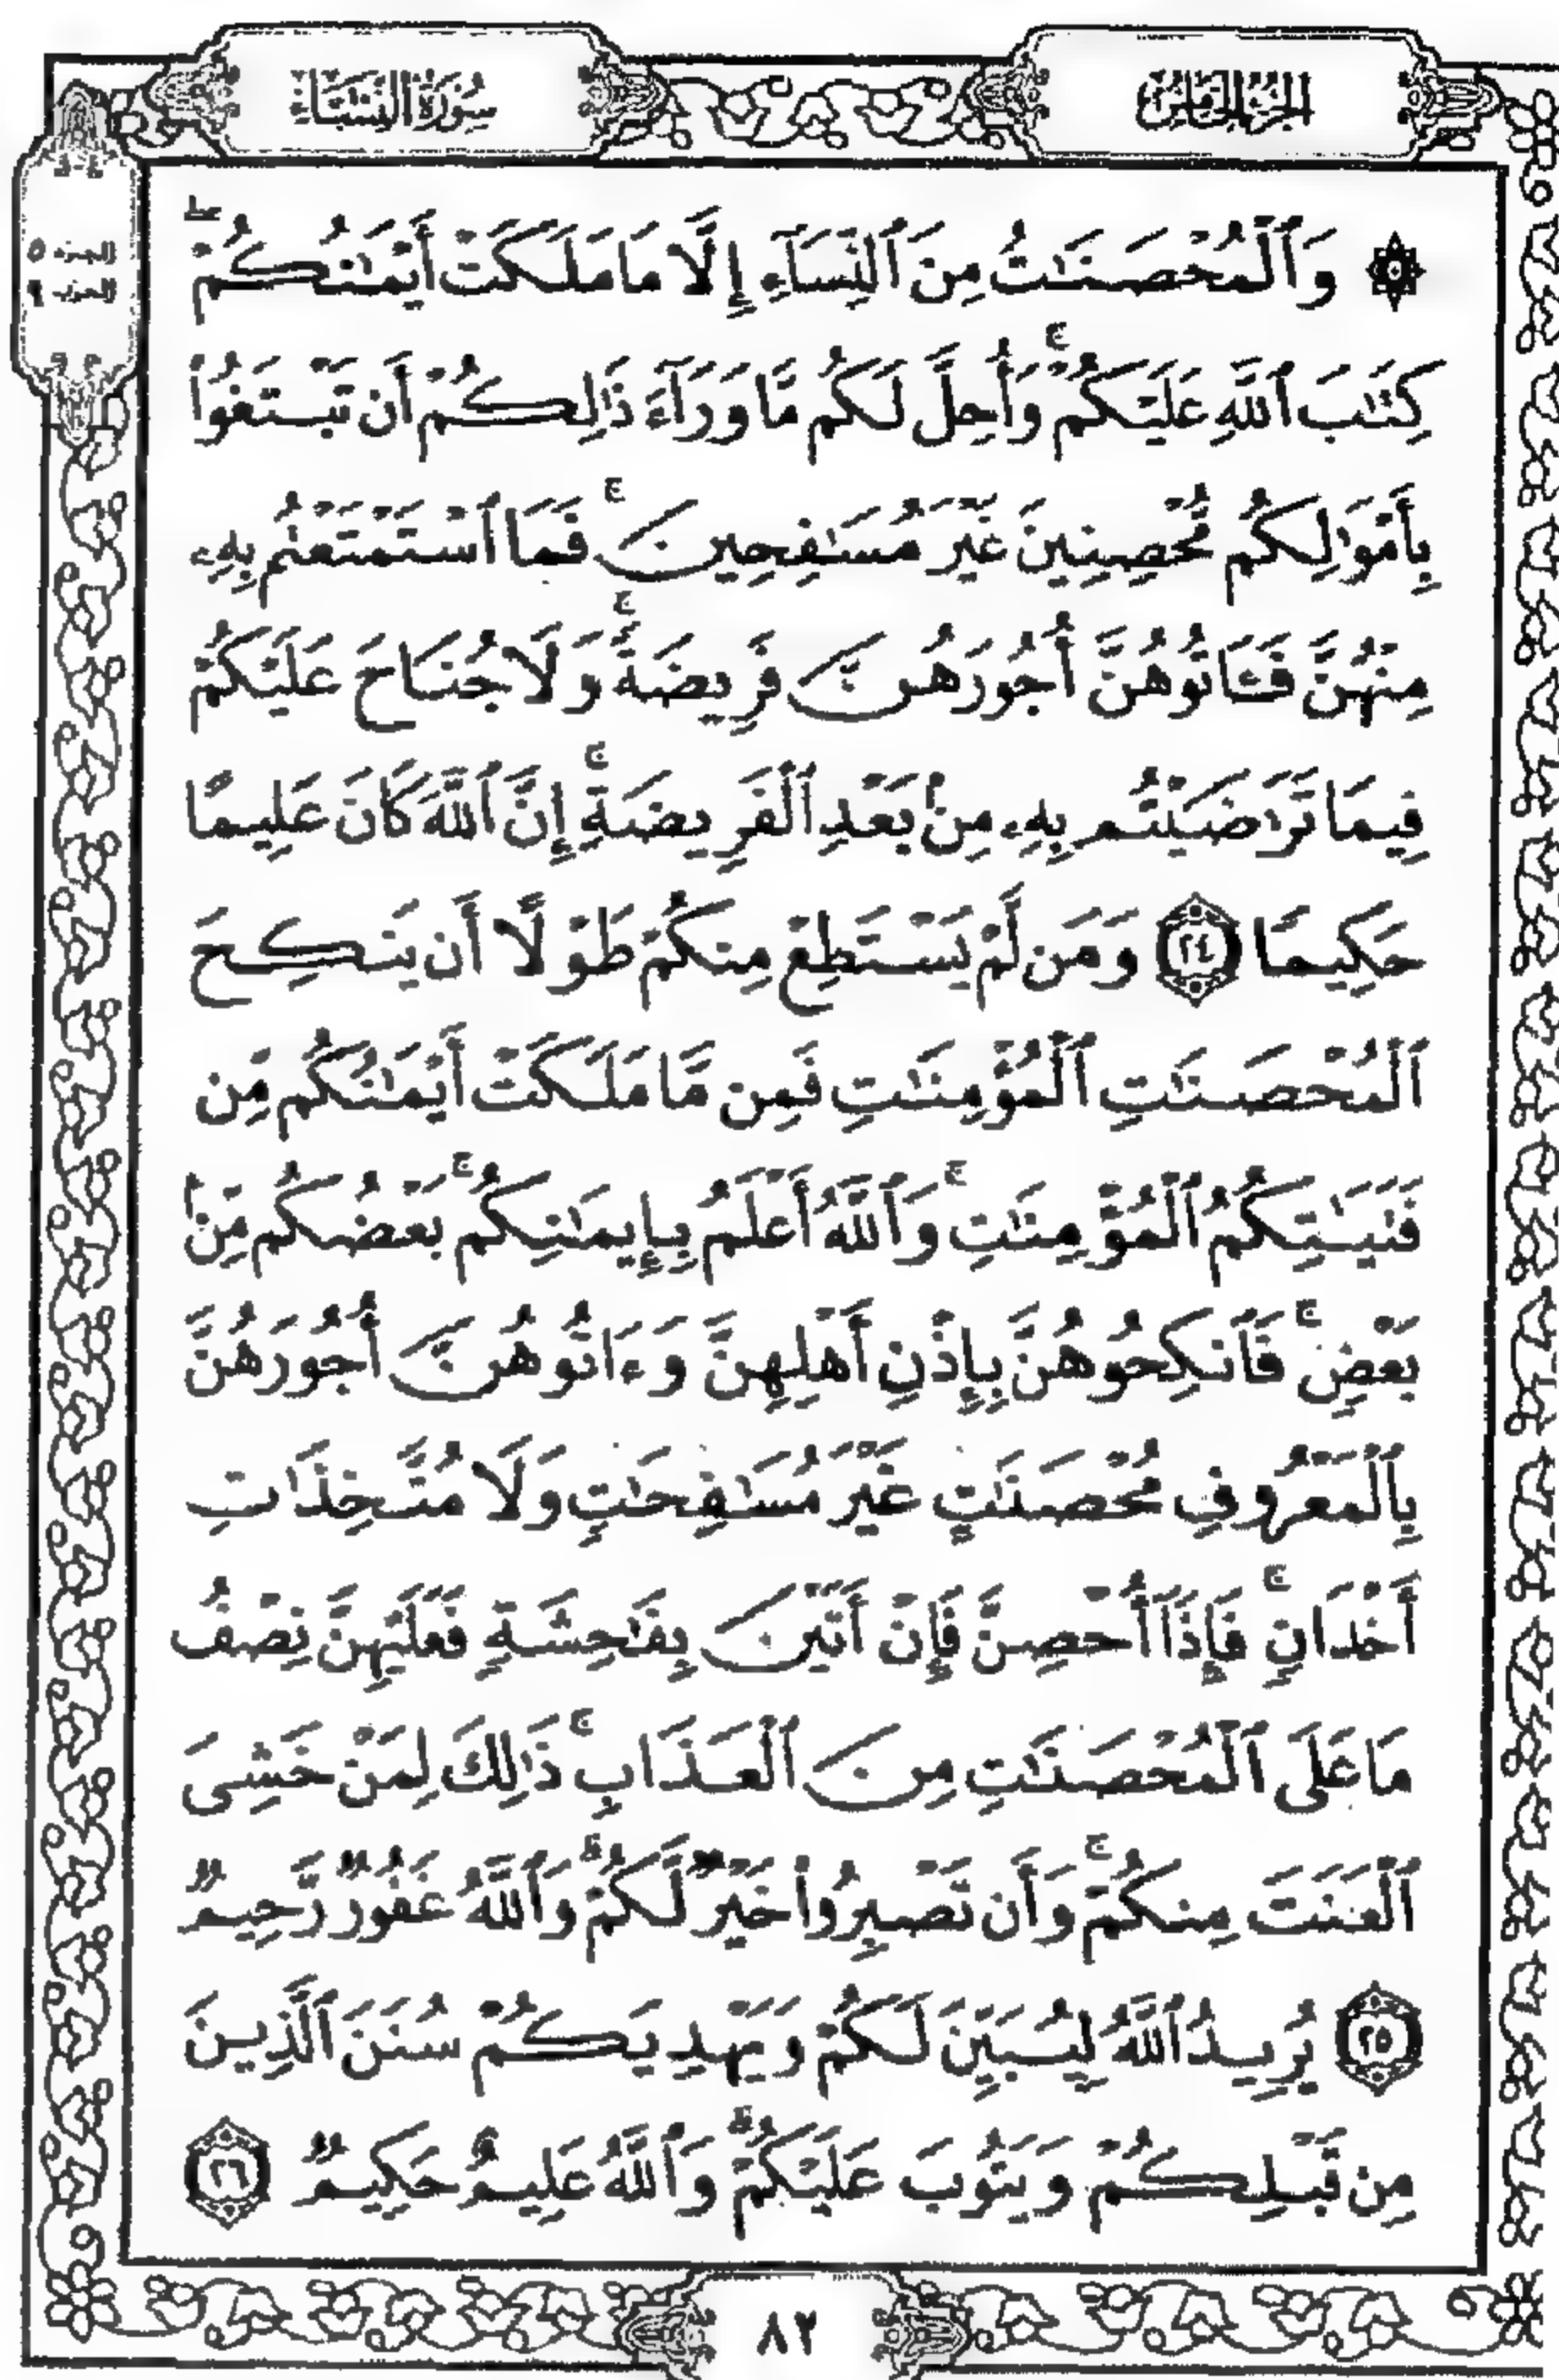 الجزء الخامس
سورة النساء
الجزء ٥
الحزب ٩
۞ وَٱلْمُحْصَنَـٰتُ مِنَ ٱلنِّسَآءِ إِلَّا مَا مَلَكَتْ أَيْمَـٰنُكُمْ ۖ
كِتَـٰبَ ٱللَّهِ عَلَيْكُمْ ۚ وَأُحِلَّ لَكُم مَّا وَرَآءَ ذَٰلِكُمْ أَن تَبْتَغُوا۟
بِأَمْوَٰلِكُم مُّحْصِنِينَ غَيْرَ مُسَـٰفِحِينَ ۚ فَمَا ٱسْتَمْتَعْتُم بِهِۦ
مِنْهُنَّ فَـَٔاتُوهُنَّ أُجُورَهُنَّ فَرِيضَةً ۚ وَلَا جُنَاحَ عَلَيْكُمْ
فِيمَا تَرَٰضَيْتُم بِهِۦ مِنۢ بَعْدِ ٱلْفَرِيضَةِ ۚ إِنَّ ٱللَّهَ كَانَ عَلِيمًا
حَكِيمًا ٢٤ وَمَن لَّمْ يَسْتَطِعْ مِنكُمْ طَوْلًا أَن يَنكِحَ
ٱلْمُحْصَنَـٰتِ ٱلْمُؤْمِنَـٰتِ فَمِن مَّا مَلَكَتْ أَيْمَـٰنُكُم مِّن
فَتَيَـٰتِكُمُ ٱلْمُؤْمِنَـٰتِ ۚ وَٱللَّهُ أَعْلَمُ بِإِيمَـٰنِكُم ۚ بَعْضُكُم مِّنۢ
بَعْضٍ ۚ فَٱنكِحُوهُنَّ بِإِذْنِ أَهْلِهِنَّ وَءَاتُوهُنَّ أُجُورَهُنَّ
بِٱلْمَعْرُوفِ مُحْصَنَـٰتٍ غَيْرَ مُسَـٰفِحَـٰتٍ وَلَا مُتَّخِذَٰتِ
أَخْدَانٍ ۚ فَإِذَآ أُحْصِنَّ فَإِنْ أَتَيْنَ بِفَـٰحِشَةٍ فَعَلَيْهِنَّ نِصْفُ
مَا عَلَى ٱلْمُحْصَنَـٰتِ مِنَ ٱلْعَذَابِ ۚ ذَٰلِكَ لِمَنْ خَشِىَ
ٱلْعَنَتَ مِنكُمْ ۚ وَأَن تَصْبِرُوا۟ خَيْرٌ لَّكُمْ ۗ وَٱللَّهُ غَفُورٌ رَّحِيمٌ
٢٥ يُرِيدُ ٱللَّهُ لِيُبَيِّنَ لَكُمْ وَيَهْدِيَكُمْ سُنَنَ ٱلَّذِينَ
مِن قَبْلِكُمْ وَيَتُوبَ عَلَيْكُمْ ۗ وَٱللَّهُ عَلِيمٌ حَكِيمٌ ٢٦
٨٢